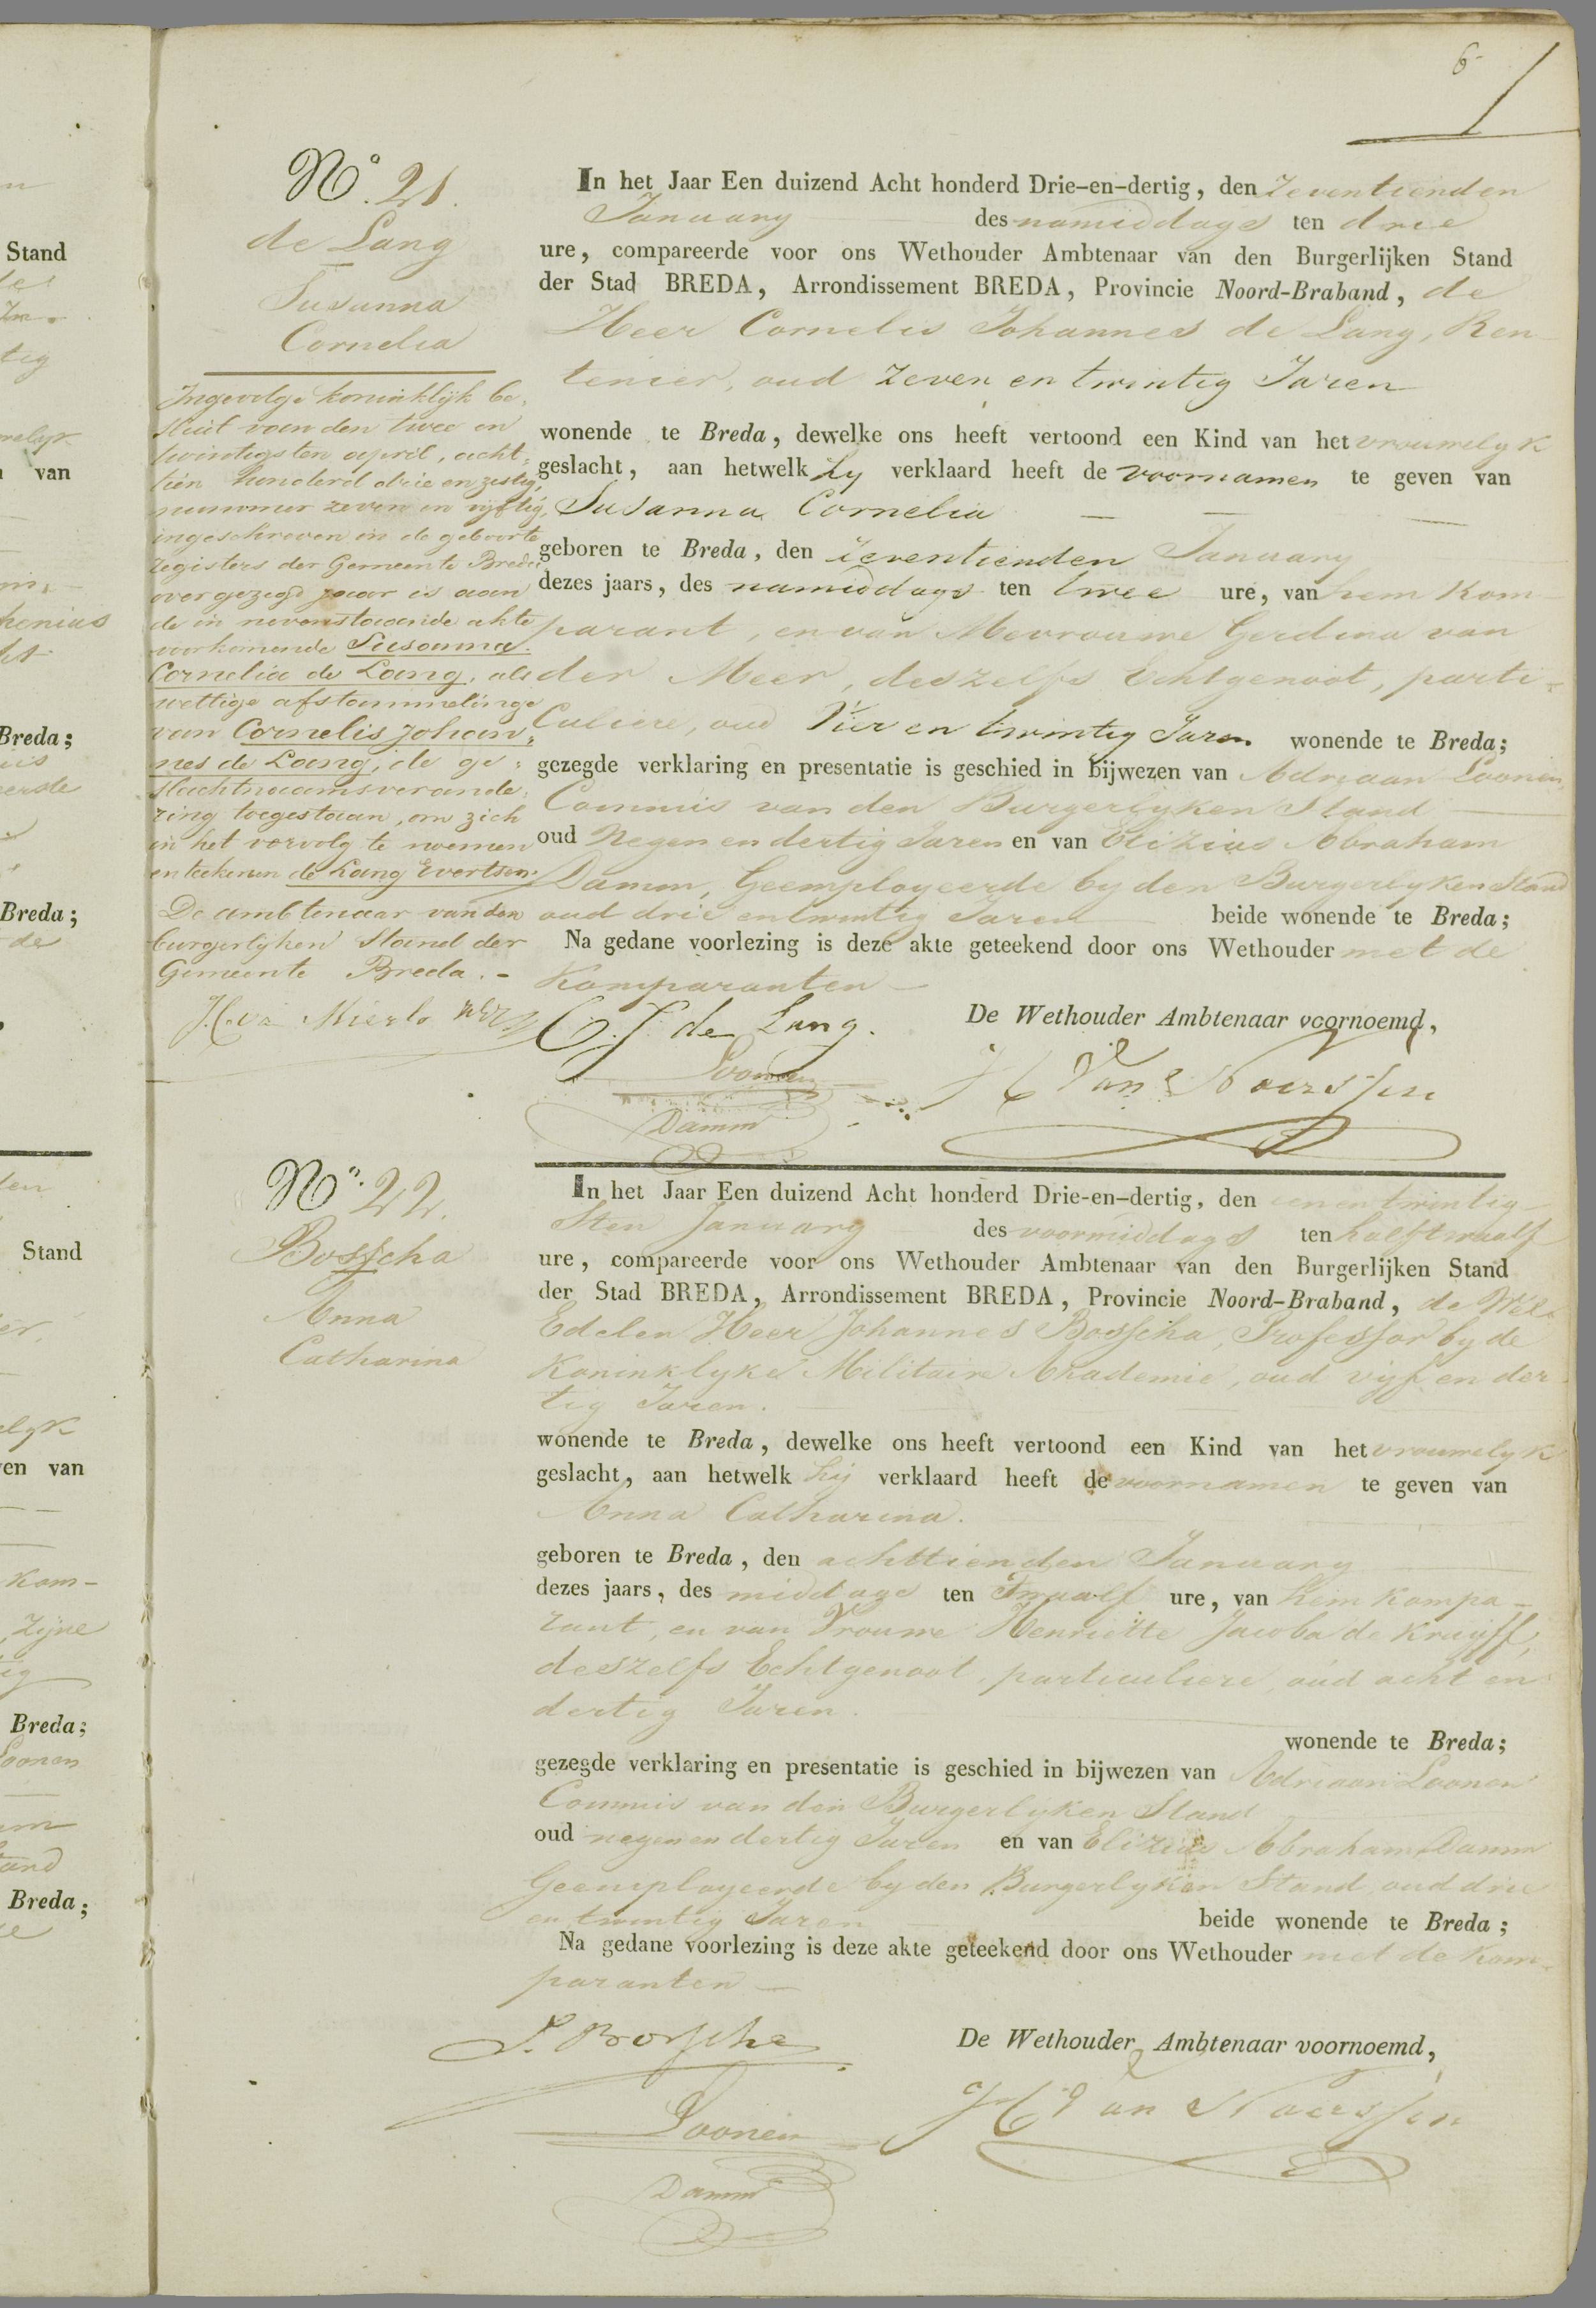 6
N.º 21.
de Lang
Susanna
Cornelia
Ingevolge koninklijk be-
sluit van den twee en
twintigsten april, acht-
tien honderd drie en zestig,
nummer zeven en vijftig,
ingeschreven in de geboorte
registers der Gemeente Breda
over gezegd jaar is aan
de in nevenstaande akte
voorkomende Susanna
Cornelia de Lang, als
wettige afstammelinge
van Cornelis Johan-
nes de Lang, de ge-
slachtnaamsverande-
ring toegestaan, om zich
in het vervolg te noemen
en teekenen de Lang Evertsen.
De ambtenaar van den
burgerlijken Stand der
Gemeente Breda. -
In het Jaar Een duizend Acht honderd Drie-en-dertig, den zeventienden
January des namiddags ten drie
ure, compareerde voor ons Wethouder Ambtenaar van den Burgerlijken Stand
der Stad BREDA, Arrondissement BREDA, Provincie Noord-Braband, de
Heer Cornelis Johannes de Lang, Ren-
tenier, oud zeven en twintig Jaren
wonende te Breda, dewelke ons heeft vertoond een Kind van het vrouwelyk
geslacht, aan hetwelk hy verklaard heeft de voornamen te geven van
Susanna Cornelia
geboren te Breda, den zeventienden January
dezes jaars, des namiddags ten twee ure, van hem kom-
parant, en van Mevrouwe Gerdina van
der Meer, deszelfs Echtgenoot, parti-
culiere, oud Vier en twintig Jaren wonende te Breda;
gezegde verklaring en presentatie is geschied in bijwezen van Adriaan Loonen,
Commis van den Burgerlyken Stand
oud Negen en dertig Jaren en van Elizius Abraham
Damm, Geemployeerde by den Burgerlyken Stand
oud drie en twintig Jaren beide wonende te Breda;
Na gedane voorlezing is deze akte geteekend door ons Wethouder met de
Komparanten
De Wethouder Ambtenaar voornoemd,
C. J. de Lang.
Loonen
Damm
N.º 22.
Bosscha
Anna
Catharina
In het Jaar Een duizend Acht honderd Drie-en-dertig, den een en twintig-
sten January des voormiddags ten half twaalf
ure, compareerde voor ons Wethouder Ambtenaar van den Burgerlijken Stand
der Stad BREDA, Arrondissement BREDA, Provincie Noord-Braband, de Wel
Edelen Heer Johannes Bosscha, Professor by de
Koninklyke Militaire Akademie, oud vyf en der-
tig Jaren.
wonende te Breda, dewelke ons heeft vertoond een Kind van het vrouwelyk
geslacht, aan hetwelk hij verklaard heeft de voornamen te geven van
Anna Catharina.
geboren te Breda, den achttienden January
dezes jaars, des middags ten Twaalf ure, van hem kompa-
rant, en van Vrouwe Henriëtte Jacoba de Kruijff,
deszelfs Echtgenoot, particuliere, oud acht en
dertig Jaren.
wonende te Breda;
gezegde verklaring en presentatie is geschied in bijwezen van Adriaan Loonen
Commis van den Burgerlijken Stand
oud negen en dertig Jaren en van Elizius Abraham Damm
Geemployeerde by den Burgerlyken Stand, oud drie
en twintig Jaren beide wonende te Breda;
Na gedane voorlezing is deze akte geteekend door ons Wethouder met de Kom-
paranten
De Wethouder Ambtenaar voornoemd,
J. Bosscha
Loonen
Damm